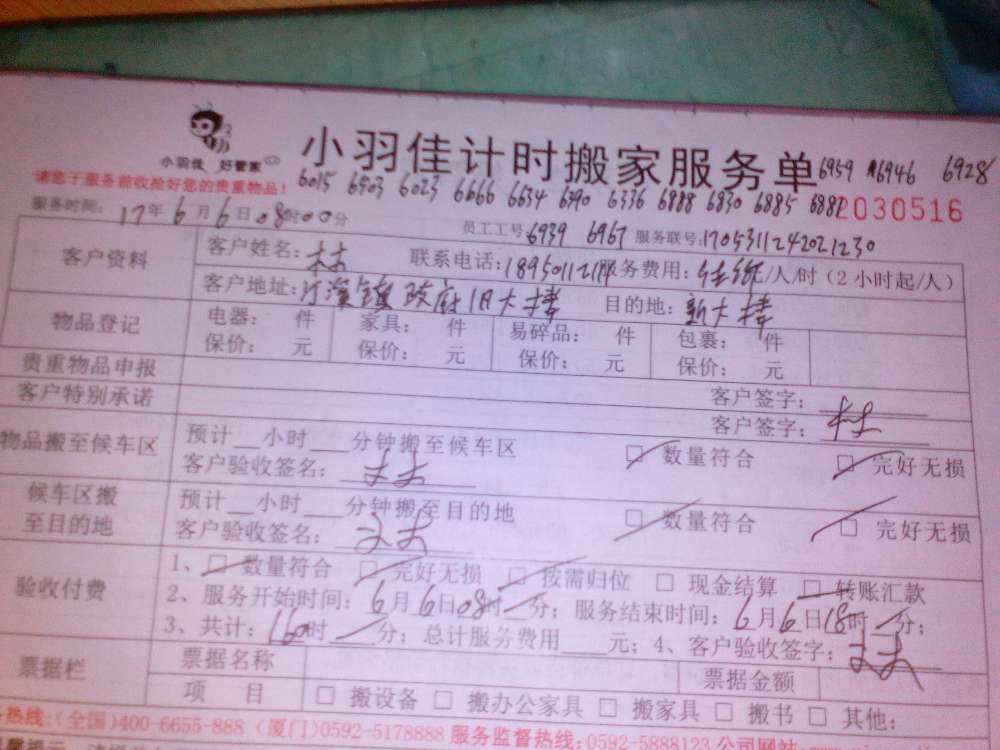 小羽佳 好管家
小羽佳计时搬家服务单 6959 6946 6928
请您于服务前收拾好您的贵重物品! 6015 6903 6023 6666 6634 6790 6336 6888 6830 6885 6882 2030516
服务时间: 17年6月6日08时00分 员工工号: 6939 6967 服务联号: 1705311242021230
客户资料 客户姓名: 联系电话: 服务费用: /人/时(2小时起/人)
客户地址: 政府旧大楼 目的地: 新大楼
物品登记 电器: 件 家具: 件 易碎品: 件 包裹: 件
保价: 元 保价: 元 保价: 元 保价: 元
贵重物品申报 客户签字:
客户特别承诺 客户签字:
物品搬至候车区 预计__小时___分钟搬至候车区 □ 数量符合 □ 完好无损
客户验收签名:
候车区搬至目的地 预计___小时___分钟搬至目的地 □ 数量符合 □ 完好无损
客户验收签名:
验收付费 1、□ 数量符合 □ 完好无损 □ 按需归位 □ 现金结算 □ 转账汇款
2、服务开始时间: 6月6日08时 分; 服务结束时间: 6月6日18时 分;
3、共计: 160时 分; 总计服务费用____元; 4、客户验收签字:
票据栏 票据名称 票据金额
项 目 □ 搬设备 □ 搬办公家具 □ 搬家具 □ 搬书 □ 其他:
热线:(全国)400-6655-888 (厦门)0592-5178888 服务监督热线:0592-5888123 公司网站: